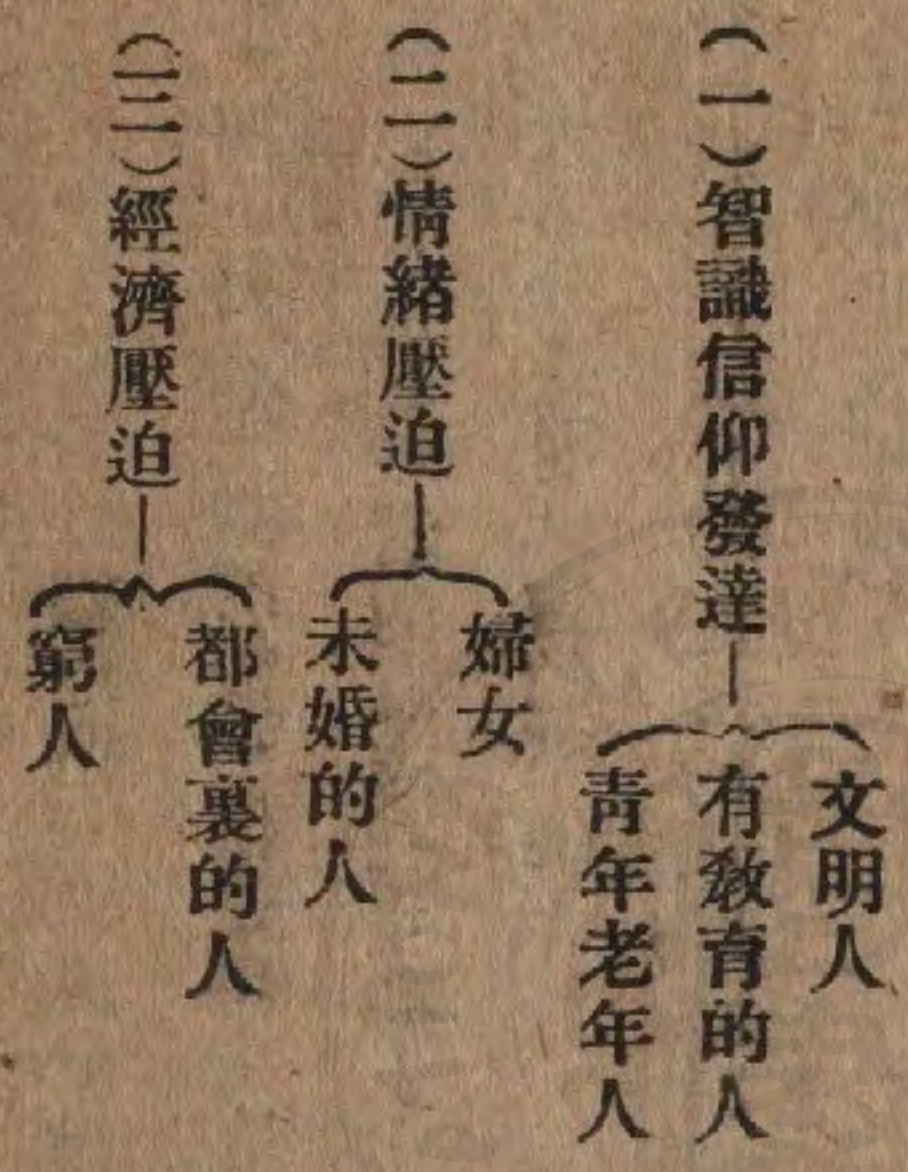 （一）智識信仰發達
文明人
有敎育的人
青年老年人
（二）情緒壓迫
婦女
未婚的人
（三）經濟壓迫
都會裏的人
窮人